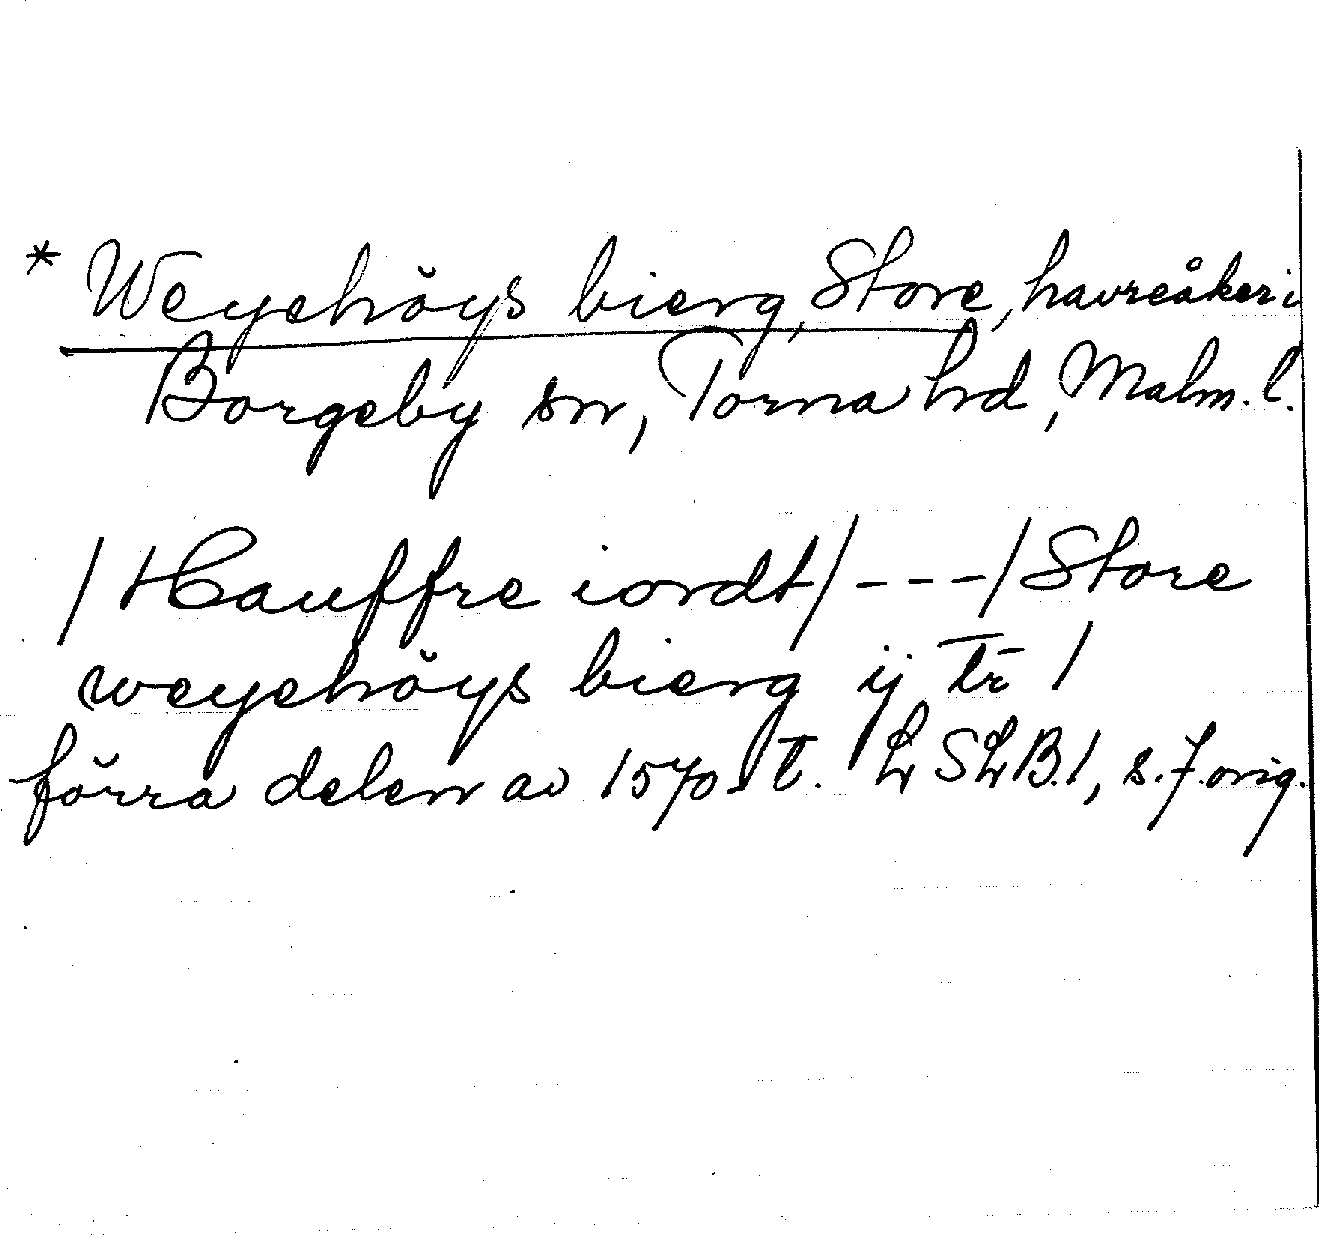 * Weyehöys bierg, Store, havreåker i
Borgeby sn, Torna hd, Malm. l.
/Hauffre iordt/ - - - /Store
weyehöys bierg ij tr̄ /
förra delen av 1570 t. LSLB.1, s.7.orig.